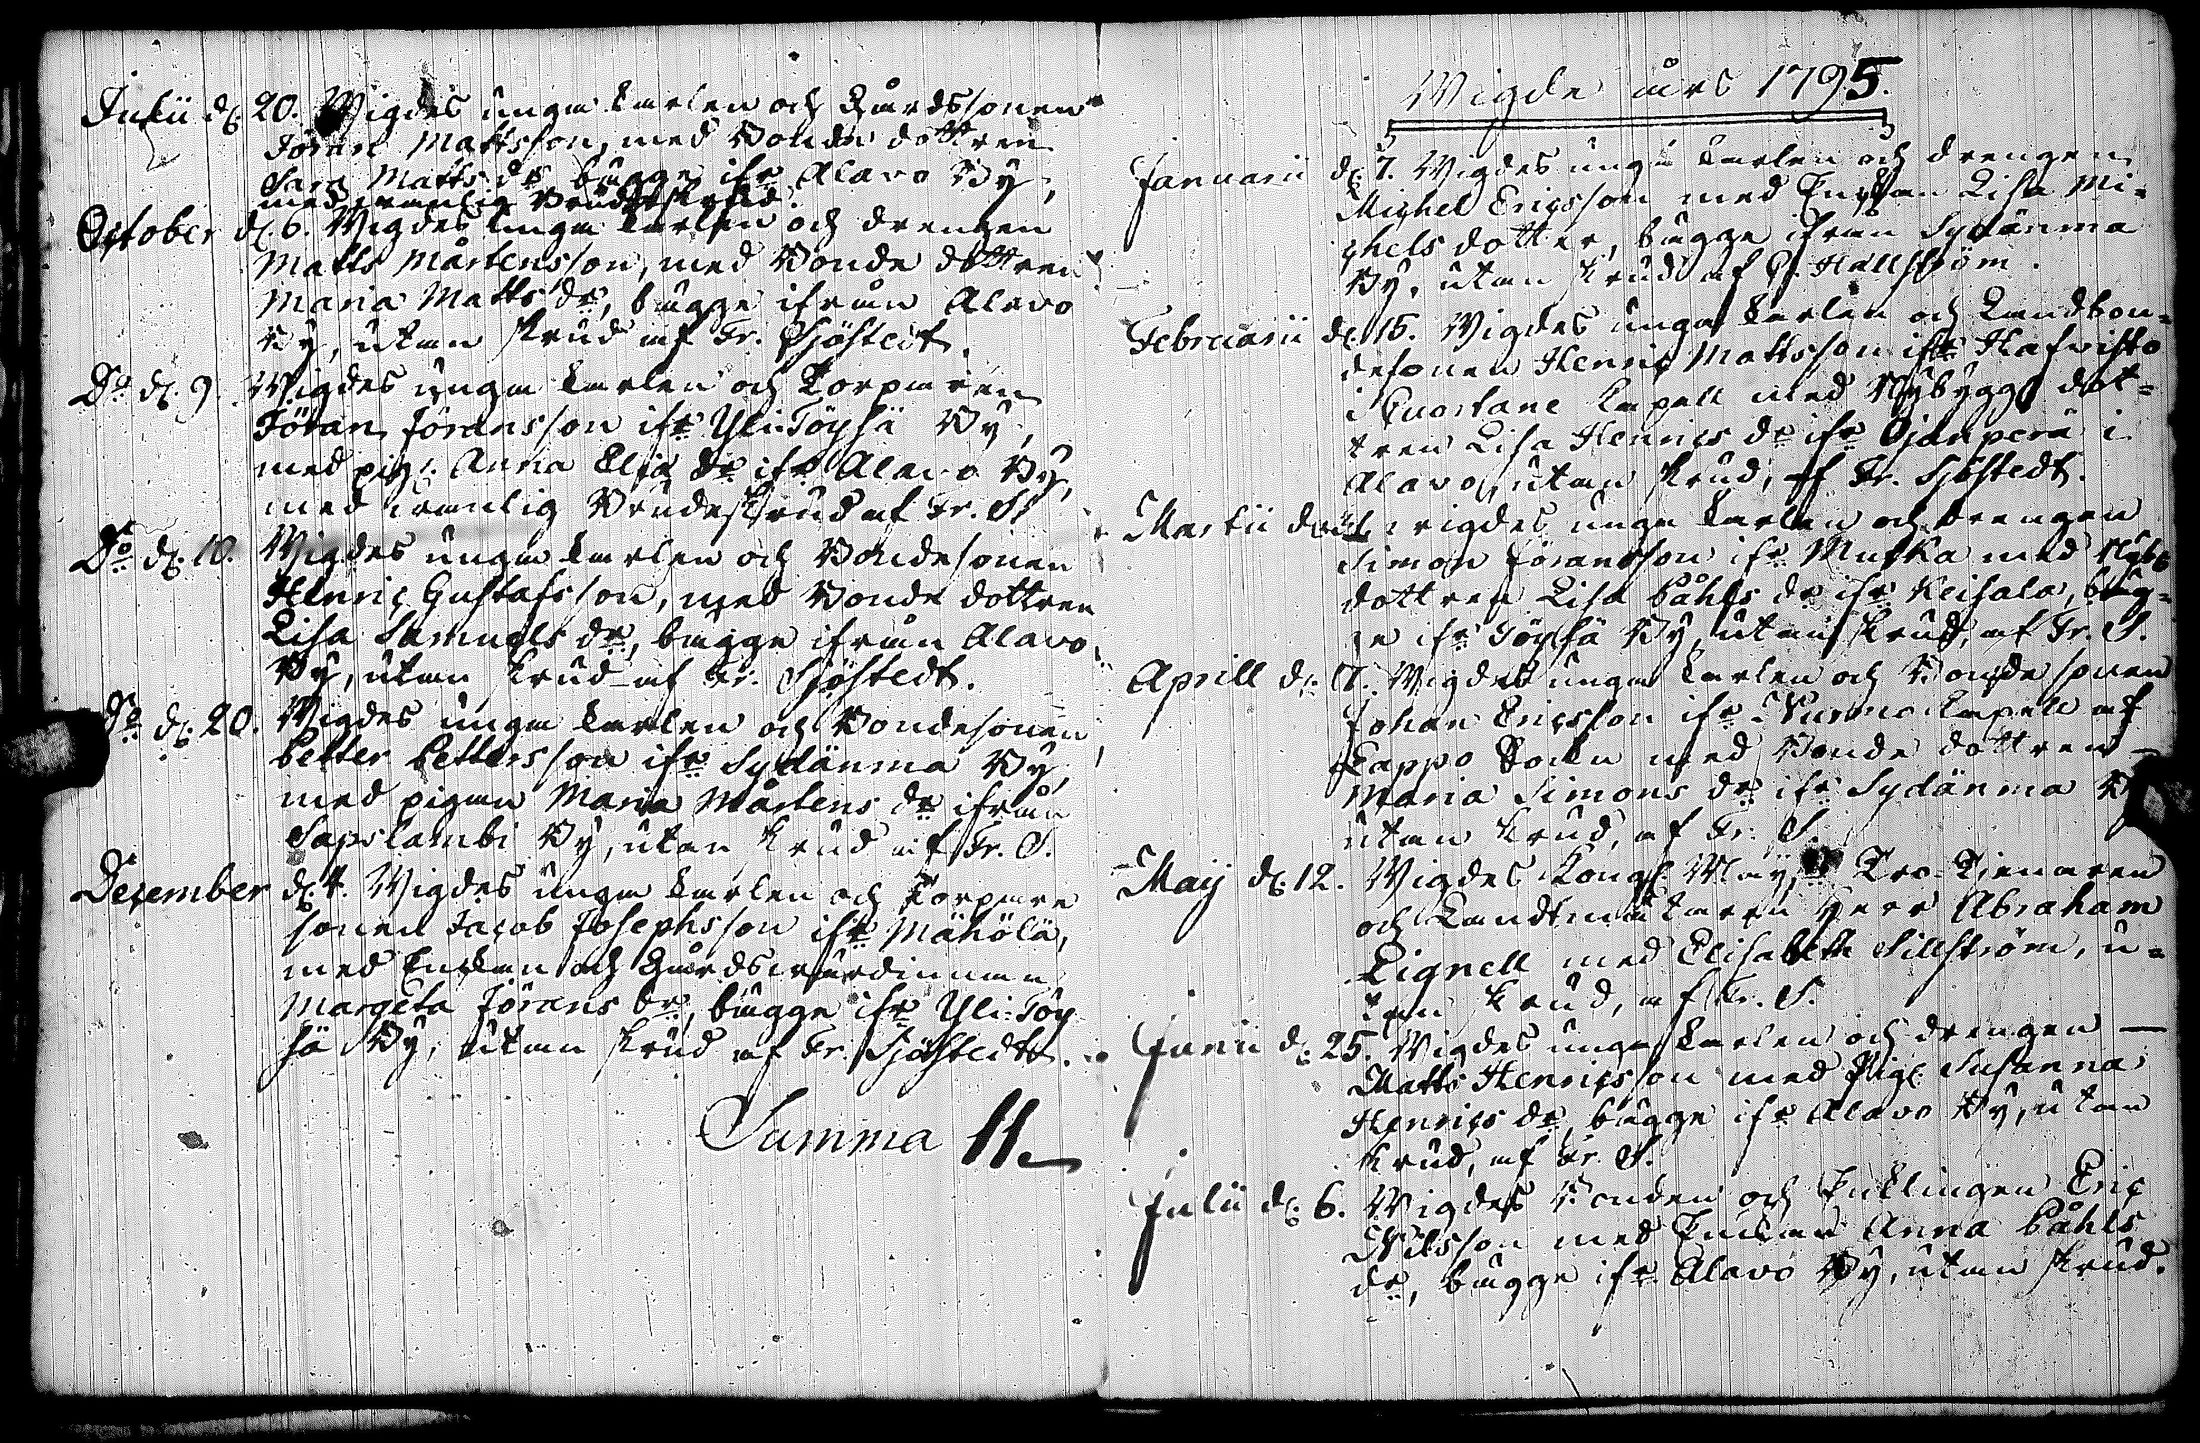 Julii d. 20. Wigdes unga Karlen och Gårdssonen
Jöran Mattsson, med Bonde dottren
Sara Matts dr bägge ifr Alavo By,
med vanlig Brudeskrud.
October d. 6. Wigdes unga Karlen och drengen
Matts Mårtensson, med Bonde dottren
Maria Matts dr, bägge ifrån Alavo
By, utan skrud af Fr. Sjöstedt.
Do d. 9. Wigdes unga Karlen och Torparen
Jöran Jöransson ifr Yli-Töysä By,
med pig. Anna Elia dr ifr Alavo By,
med vanlig Brudeskrud af Fr. S.
Do d. 10. Wigdes unga Karlen och Bondesonen
Henric Gustafsson, med Bonde dottren
Lisa Samuels dr, bägge ifrån Alavo
By, utan skrud af Fr. Sjöstedt.
Do d. 20. Wigdes unga Karlen och Bondesonen
Petter Pettersson ifr Sydänma By,
med pigan Maria Mårtens dr ifrån
Sapslambi By, utan skrud af Fr. S.
December d. 4. Wigdes unga Karlen och Torpare
sonen Jacob Josephsson ifr Mähölä,
med Enkan och Gårdswärdinnan
Margeta Jörans dr, bägge ifr Yli-Töy
sä By, utan skrud af Fr. Sjöstedt.
Summa 11.
Wigde års 1795.
Januarii d. 7. Wigdes unga Karlen och drengen
Michel Ericsson med Enkan Lisa Mi-
chels dotter, bägge ifrån Sydänma
By, utan skrud af P. Hallström.
Februarii d. 15. Wigdes unga Karlen och Landbon-
desonen Henric Mattsson ifr Hafvisto
i Kuortane Capell med Nybygg. dot-
tren Lisa Henrics dr ifr Ojanperä i
Alavo, utan skrud, af Fr. Sjöstedt.
Martii wigdes unga Karlen och drengen
Simon Jöransson ifr Mutka med Nyb.
dottren Lisa Påhls dr ifr Keisala, bäg-
ge ifr Töysä By, utan skrud, af Fr. S.
Aprill d. 7. Wigdes unga Karlen och Bonde sonen
Johan Ericsson ifr Nurmo Capell af
Lappo Sockn med Bonde dottren
Maria Simons dr ifr Sydänma By
utan skrud, af Fr. S.
Maij d. 12. Wigdes Kongl. May:ts Tro-Tjenaren
och Landtmätaren Herr Abraham
Lignell med Elisabeth Sillström, u-
tan skrud, af Fr. S.
Junii d. 25. Wigdes unga Karlen och drengen
Matts Henricsson med Pig. Susanna
Henrics dr, bägge ifr Alavo By, utan
skrud, af Fr. S.
Julii d. 6. Wigdes Bonden och Enklingen Eric
Nilsson med Enkan Anna Påhls
dr, bägge ifr Alavo By, utan skrud.